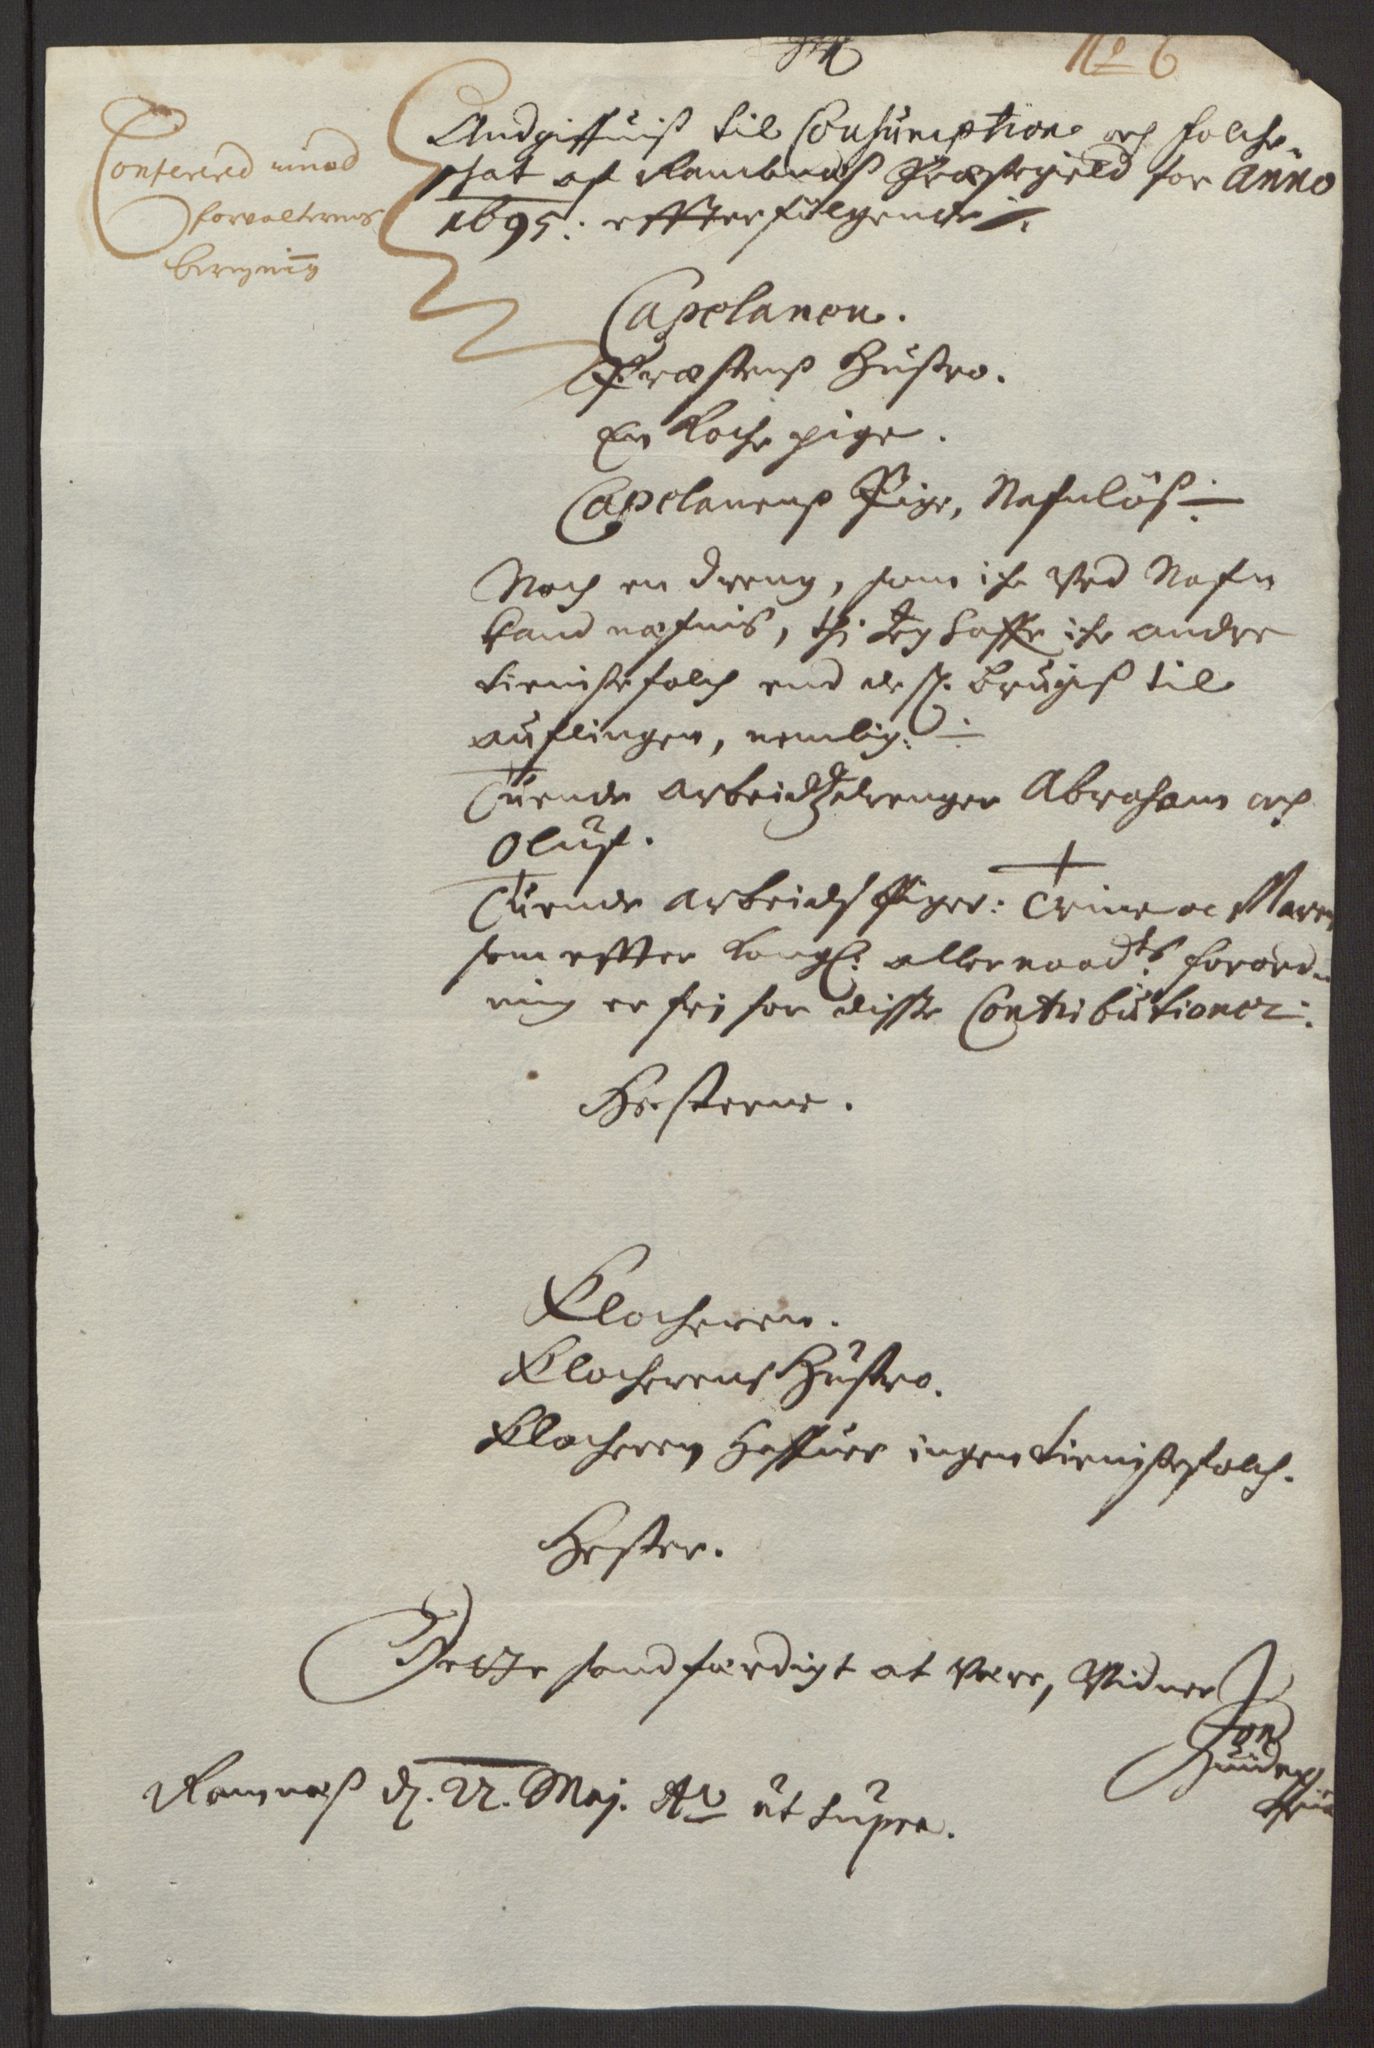 No 6
Conferered imod
forvalterens
beregning
Andgiffuiß til Consumption och folche-
schat af Ramneß Præstegield for Anno
1695: effterfølgende:
Capelanen.
Præstens Hustro.
En Koche pige.
Capelanenß Pige, Nafnløß
Noch en dreng, som ich ved Nafn
kand næfnis, thj Jeg haffr ich andre
tienistefolch end de sc. brugeß til
auflingen, nemlig:
Tuende arbeidzdrenger Abraham och
Oluf.
Tuende arbeids Piger: Trine oc Maren
som effter Kongl: allernaadts forord-
ning er frj for disse Contributioner:
Hesterne.
Klocheren.
Klocherens Hustro.
Klocheren haffuer ingen tienistefolch.
Hester.
Dette sandfærdigt at være, Vidner
Ramneß d. 22. Maj. Ao ut supra.